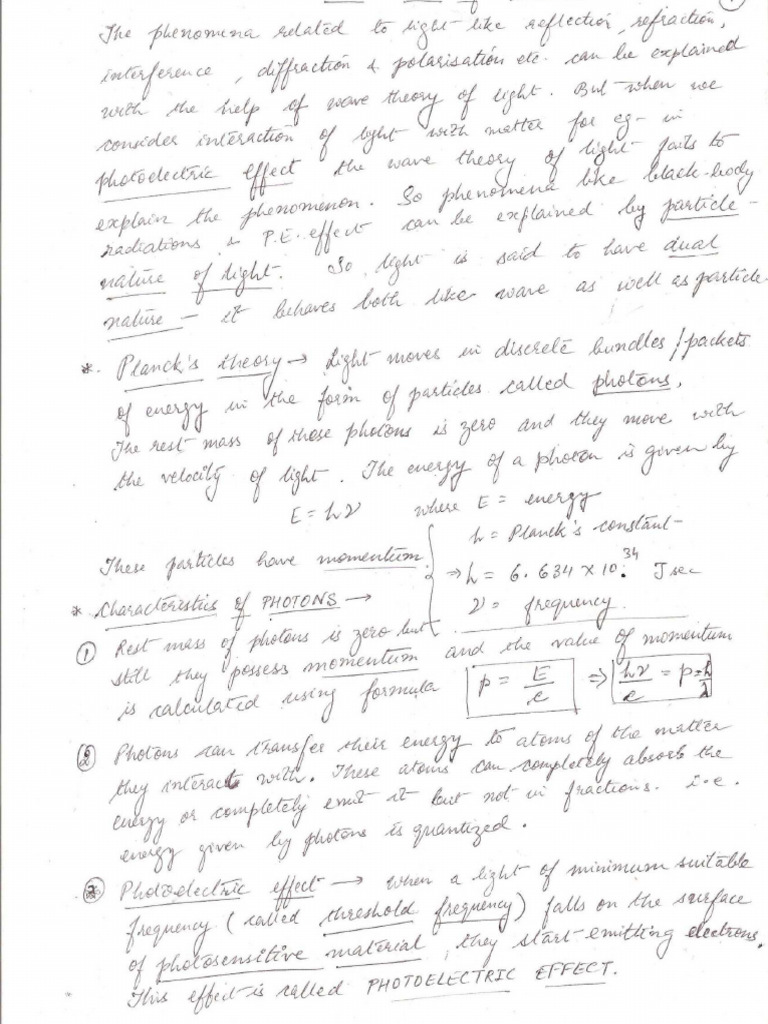 The phenomena related to light like reflection, refraction,
interference, diffraction & polarisation etc. can be explained
with the help of wave theory of light. But when we
consider interaction of light with matter for eg - in
photoelectric effect the wave theory of light fails to
explain the phenomenon. So phenomena like black-body
radiations & P.E. effect can be explained by particle-
nature of light. So light is said to have dual
nature - it behaves both like wave as well as particle.
* Planck's theory → Light moves in discrete bundles / packets
of energy in the form of particles called photons.
The rest mass of these photons is zero and they move with
the velocity of light. The energy of a photon is given by
E = hν where E = energy
h = Planck's constant
These particles have momentum. ⇒ h = 6.634 × 10.³⁴ J sec
* Characteristics of PHOTONS → ν = frequency.
① Rest mass of photons is zero but
still they possess momentum and the value of momentum
is calculated using formula p = E/c ⇒ hν/c = p = h/λ
② Photons can transfer their energy to atoms of the matter
they interact with. These atoms can completely absorb the
energy or completely emit it but not in fractions. i.e.
energy given by photons is quantized.
Photoelectric effect → When a light of minimum suitable
frequency (called threshold frequency) falls on the surface
of photosensitive material, they start emitting electrons.
This effect is called PHOTOELECTRIC EFFECT.